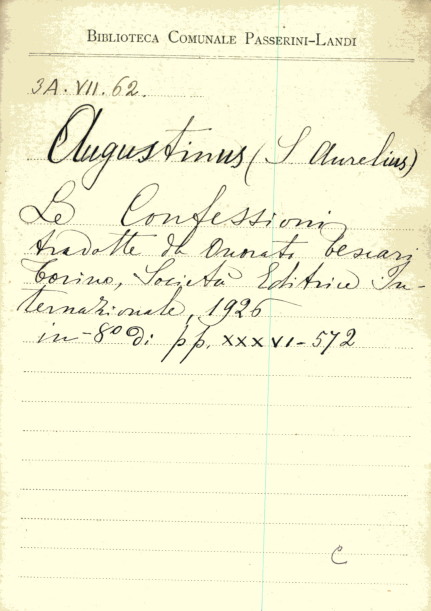 BIBLIOTECA COMUNALE PASSERINI-LANDI
3A. VII. 62.
Augustinus (S Aurelius)
Le Confessioni
tradotte da Onorato Tescari
Torino, Società Editrice In-
ternazionale, 1926
in-8° di pp. XXXVI-572
C